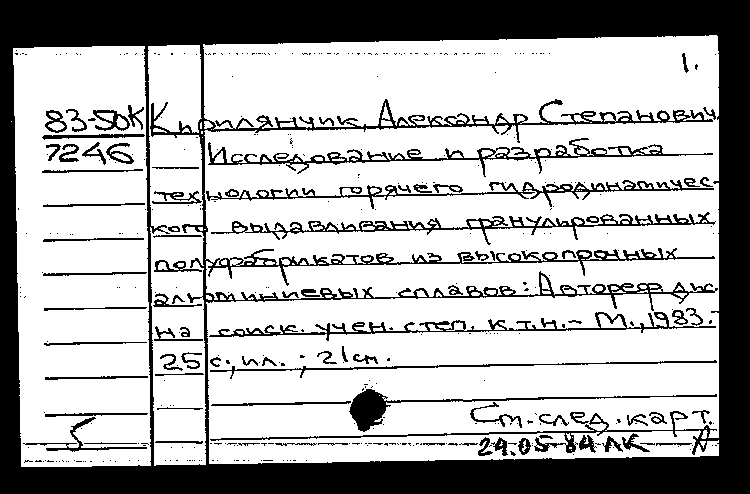 1.
83-50К Кирилянчик, Александр Степанович.
7246 Исследование и разработка
технологии горячего гидродинамичес-
кого выдавливания гранулированных
полуфабрикатов из высокопрочных
алюминиевых сплавов: Автореф. дис.
на соиск. учен. степ. к.т.н. – М., 1983. –
25 с., ил. ; 21 см.
См. след. карт.
5 24.05-84 ЛК